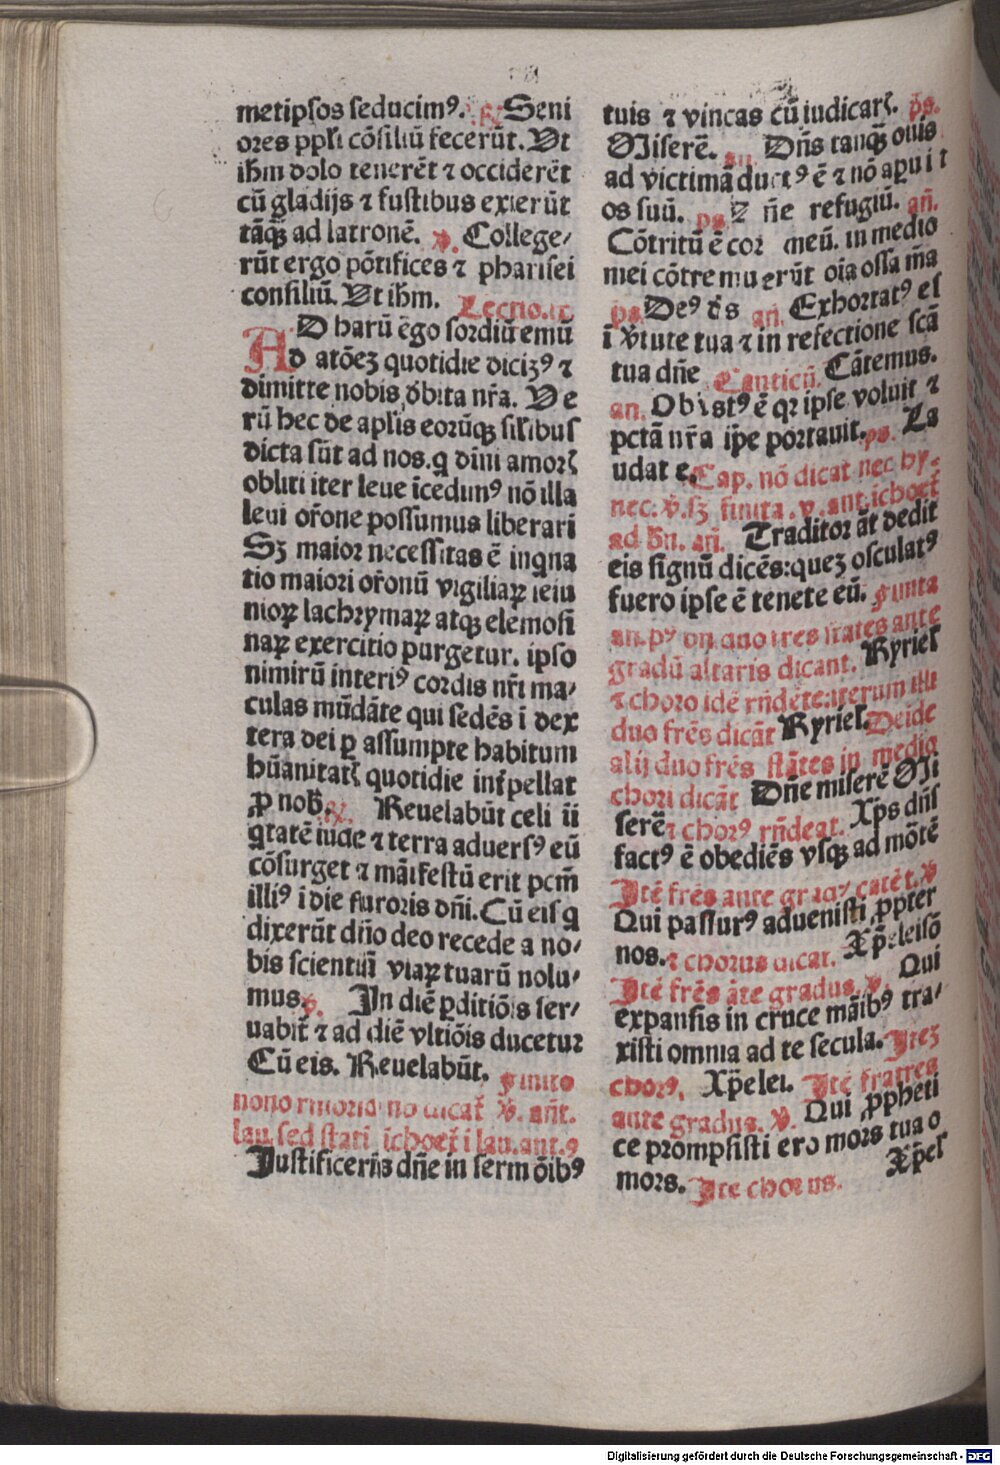 metipsos seducimꝰ. ꝶ Seni
ores ppl̄i cōsiliū fecerūt. Vt
ih̄m dolo tenerēt ⁊ occiderēt
cū gladijs ⁊ fustibus exierūt
tāꝙ̄ ad latronē. ꝟ. College⸗
rūt ergo pōtifices ⁊ pharisei
consiliū. Vt ih̄m. Lectio.ix.
AD harū ēgo sordiū emū
dō atōeʒ quotidie diciꝫꝰ ⁊
dimitte nobis ꝺbita nr̄a. Ve
rū hec de apl̄is eorūqꝫ sil̄ibus
dicta sūt ad nos. q dīni amorꝭ
obliti iter leue īcedunꝰ nō illa
leui or̄one possumus liberari
Sꝫ maior necessitas ē inqna
tio maiori or̄onū vigiliaꝝ ieiu
nioꝝ lachrymaꝝ atqꝫ elemosi
naꝝ exercitio purgetur. ipso
nimirū interiꝰ cordis nr̄i ma⸗
culas mūdāte qui sedēs i dex
tera dei ꝑ assumpte habitum
hūanitatꝭ quotidie int̄pellat
ꝓ nob̄. ꝶ. Reuelabūt celi ii
qtatē iude ⁊ terra aduersꝰ eū
cōsurget ⁊ māifestū erit pcm̄
illiꝰ i die furoris dn̄i. Cū eis q
dixerūt dn̄o deo recede a no⸗
bis scientiā viaꝝ tuarū nolu⸗
mus. ꝟ. In diē ꝑditiōis ser⸗
uabit̄ ⁊ ad diē vltiōis ducetur
Cū eis. Reuelabūt. finito
nono no dicat̄ ꝟ. an̄t.
lau. sed stati īchoet̄ i lau. ant. ꝯ
Justificeris dn̄e in sermōibꝰ
tuis ⁊ vincas cū iudicarꝭ. ps.
Miserē. an. Dn̄s tanqꝫ̄ ouis
ad victimā ductꝰ ē ⁊ nō aperuit
os suū. ps n̄e refugiū. an̄.
Cōtritū ē cor meū. in medio
mei cōtremuerūt oīa ossa m̄a
ps. Deꝰ d̄s an̄. Exhortatꝰ es
ī v̄tute tua ⁊ in refectione scā
tua dn̄e Canticū. Cātemus.
an. Oblatꝰ ē qꝛ ipse voluit ⁊
pctā nr̄a ip̄e portauit. ps. La
udate. Cap. nō dicat̄ nec hy⸗
nec. ꝟ. sꝫ finita . ꝟ. ant. ichoet̄
ad Bn. an̄. Traditor āt dedit
eis signū dicēs: queʒ osculatꝰ
fuero ipse ē tenete eū. finita
an. pꝰ duo fres stātes ante
gradū altaris dicant. Kyriel̄
⁊ choro idē rn̄dēte: iterum illi
duo frēs dicāt Kyriel̄. Deide
alij duo frēs stātes in medio
chori dicāt Dn̄e miserē Mi
serē ⁊ chorꝰ rn̄deat. Xp̄s dn̄s
factꝰ ē obediēs vsqꝫ ad mōtē
Itē frēs ante gradꝰ catēt. ꝟ
Qui passurꝰ aduenisti ꝓpter
nos. ⁊ chorus dicat. Xp̄eleisō
Itē frēs āte gradus. ꝟ. Qui
expansis in cruce māibꝰ tra⸗
xisti omnia ad te secula. Iteʒ
chorꝰ. Xp̄elei. Itē fratres
ante gradus. ꝟ. Qui ꝓpheti
ce prompsisti ero mors tua o
mors. Ite chorus. Xp̄el̄
Digitalisierung gefördert durch die Deutsche Forschungsgemeinschaft - DFG